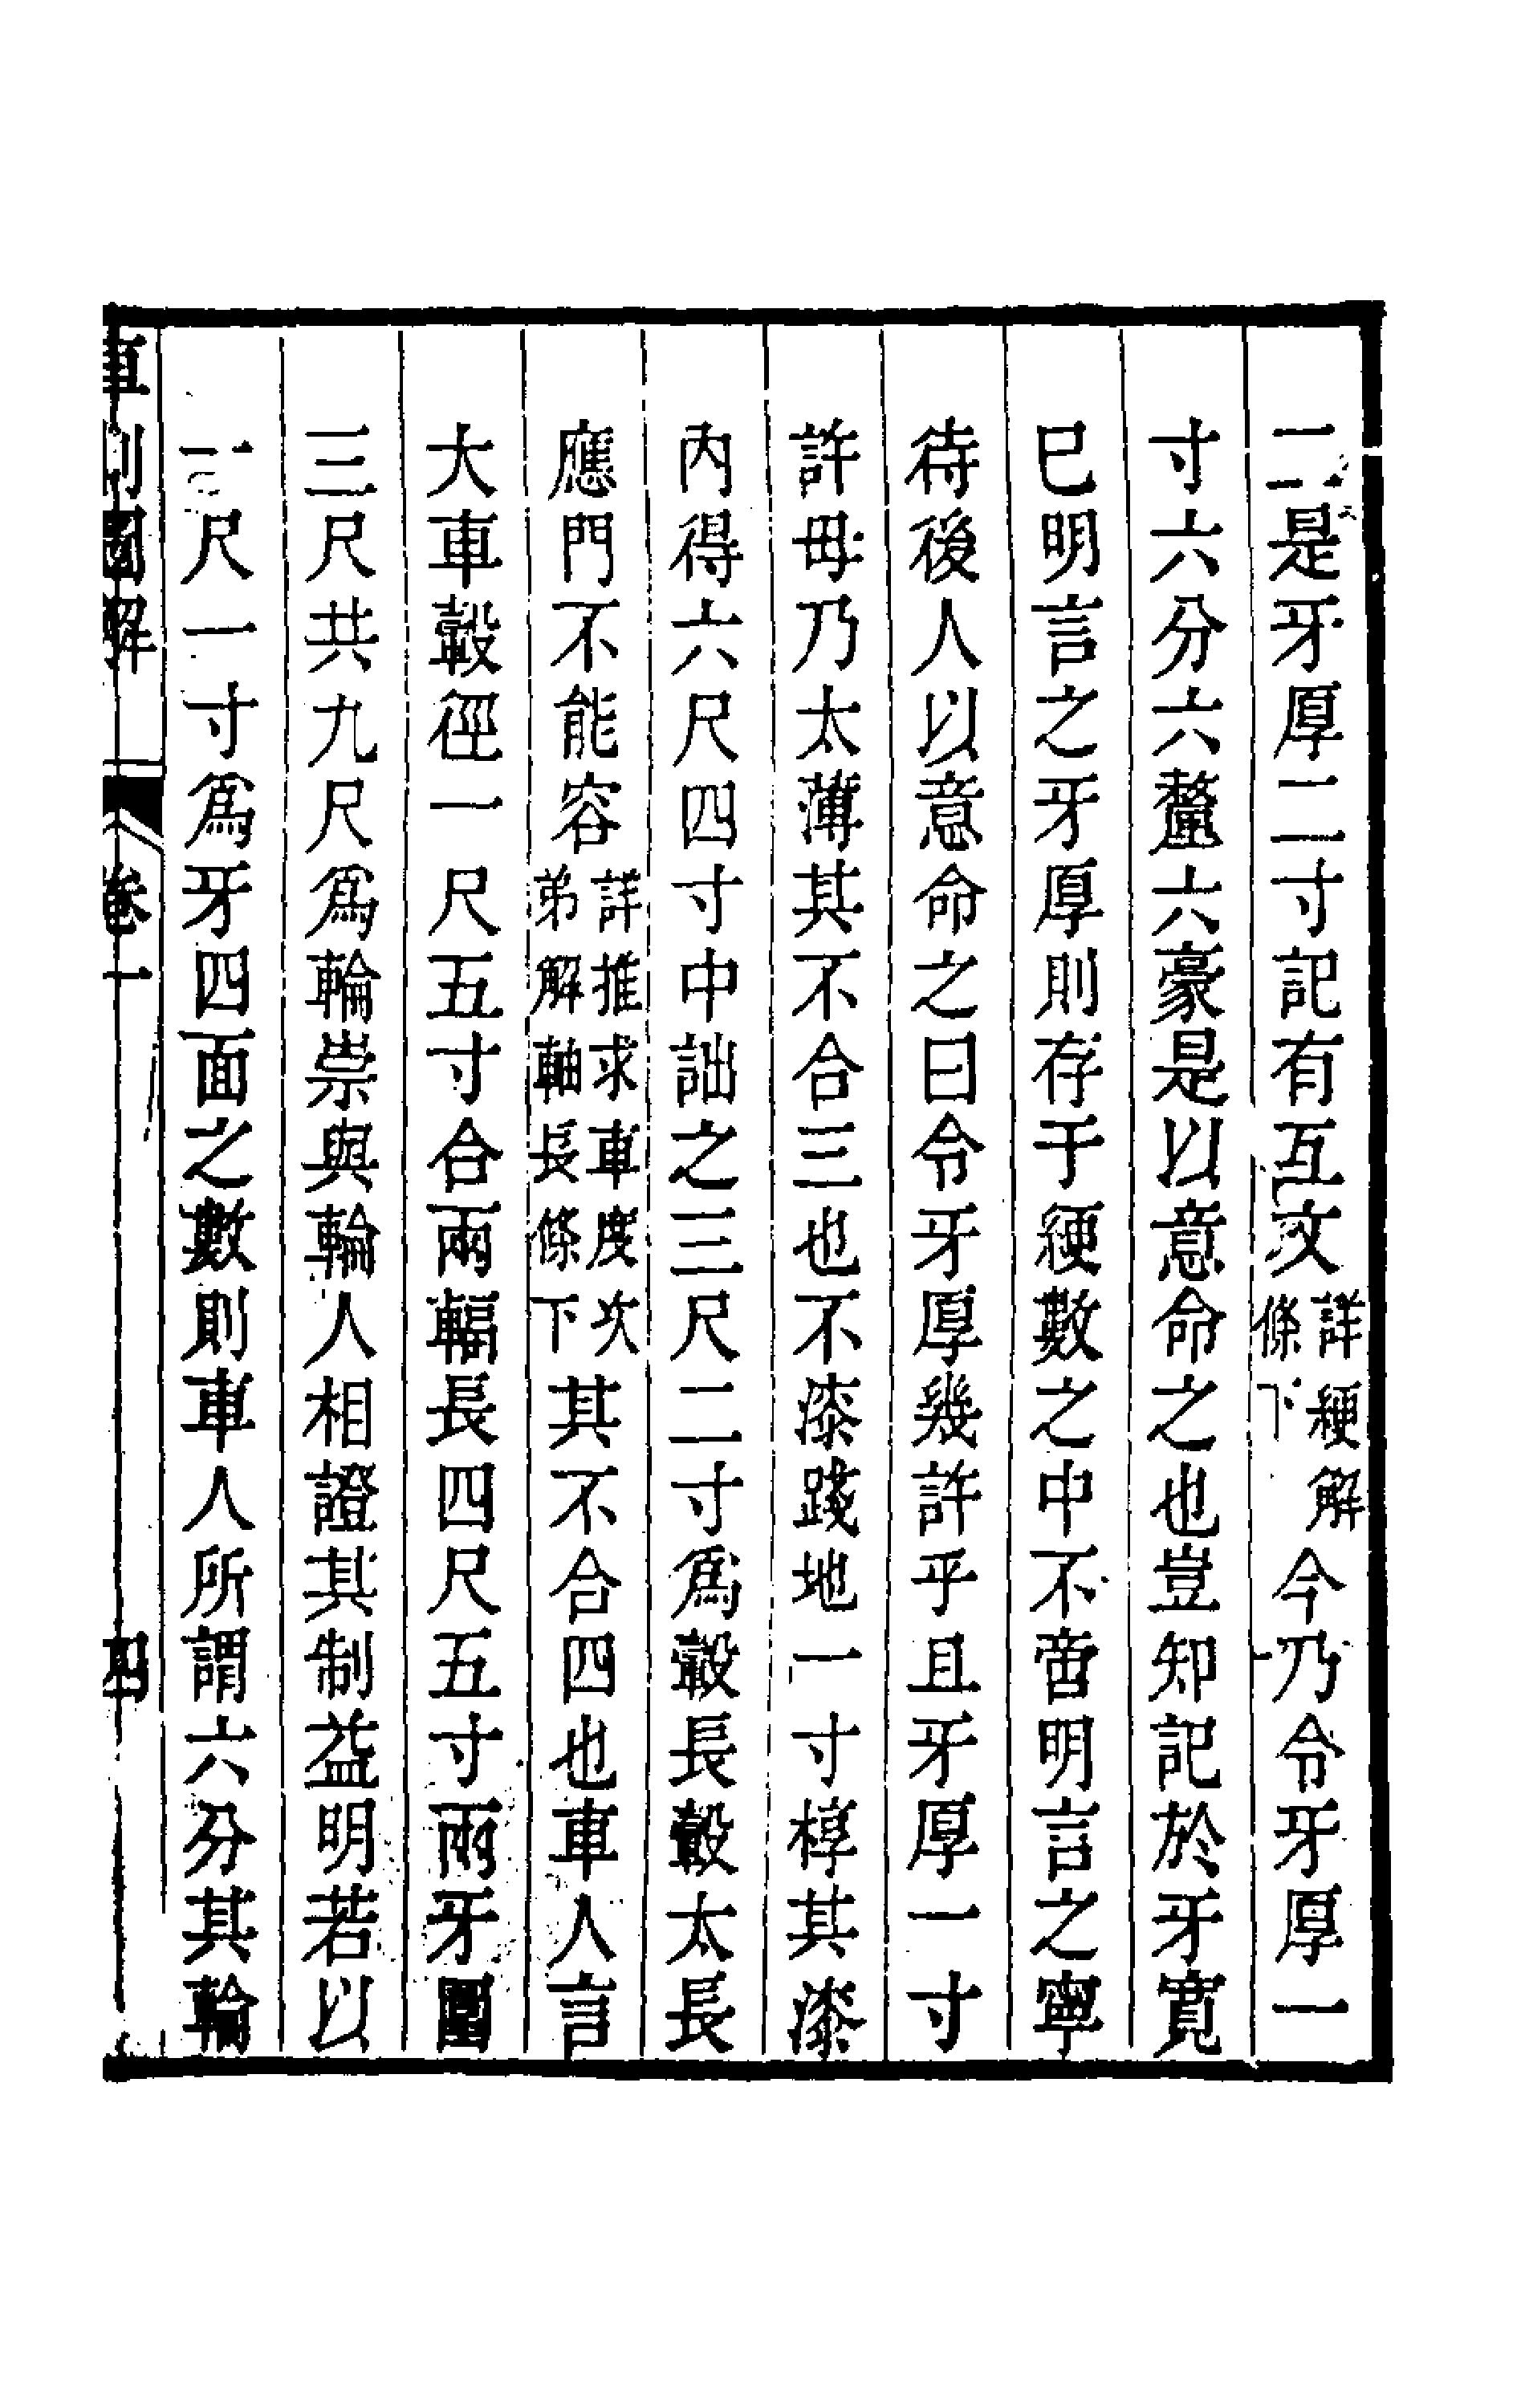 二是牙厚二寸記有互文詳綆解條下今乃令牙厚一
寸六分六釐六豪是以意命之也豈知記於牙寬
已明言之牙厚則存于綆數之中不啻明言之寧
待後人以意命之曰令牙厚幾許乎且牙厚一寸
許毋乃太薄其不合三也不漆踐地一寸椁其漆
內得六尺四寸中詘之三尺二寸爲轂長轂太長
應門不能容詳推求車度次弟解軸長條下其不合四也車人言
大車轂徑一尺五寸合兩輻長四尺五寸兩牙圍
三尺共九尺爲輪崇與輪人相證其制益明若以
一尺一寸爲牙四面之數則車人所謂六分其輪
車制圖解 卷一 四